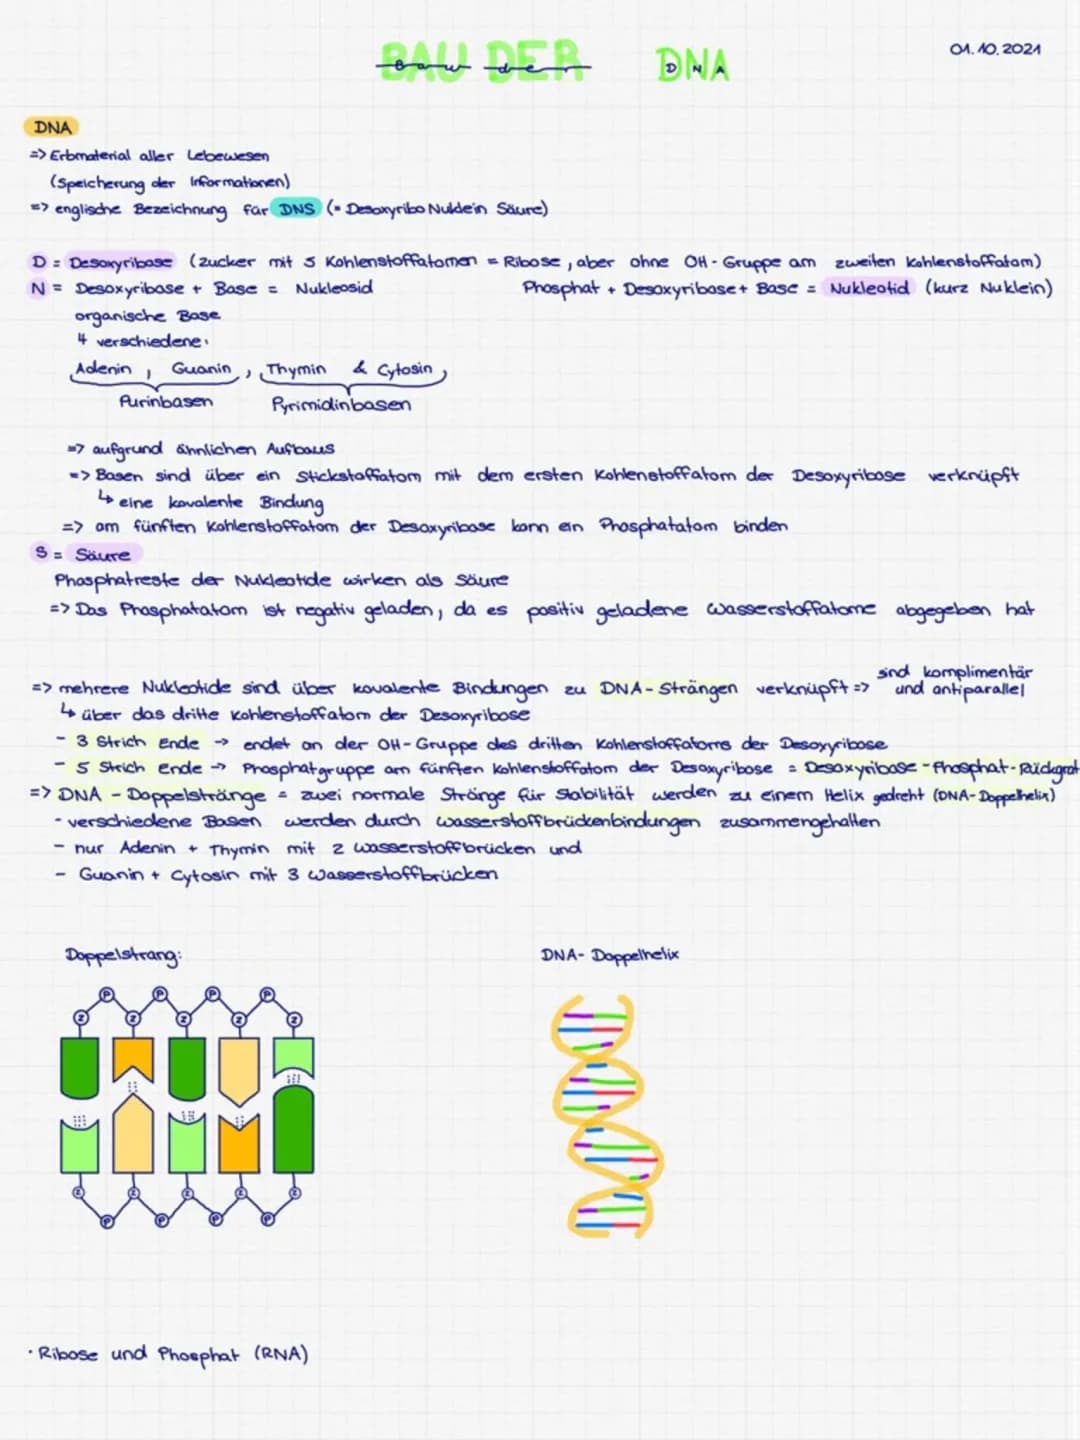 BAU DER DNA
Bau der DNA
01.10.2021
DNA
=> Erbmaterial aller Lebewesen
(Speicherung der Informationen)
=> englische Bezeichnung für DNS (= Desoxyribo Nuklein Säure)
D = Desoxyribose (zucker mit 5 Kohlenstoffatomen = Ribose, aber ohne OH-Gruppe am zweiten Kohlenstoffatom)
N = Desoxyribose + Base = Nukleosid Phosphat + Desoxyribose + Base = Nukleotid (kurz Nuklein)
organische Base
4 verschiedene:
Adenin, Guanin, Thymin & Cytosin,
Purinbasen Pyrimidinbasen
=> aufgrund ähnlichen Aufbaus
=> Basen sind über ein Stickstoffatom mit dem ersten Kohlenstoffatom der Desoxyribose verknüpft
↳ eine kovalente Bindung
=> am fünften Kohlenstoffatom der Desoxyribose kann ein Phosphatatom binden
S = Säure
Phosphatreste der Nukleotide wirken als Säure
=> Das Phosphatatom ist negativ geladen, da es positiv geladene Wasserstoffatome abgegeben hat
=> mehrere Nukleotide sind über kovalente Bindungen zu DNA-Strängen verknüpft => sind komplimentär und antiparallel
↳ über das dritte Kohlenstoffatom der Desoxyribose
- 3 Strich Ende → endet an der OH-Gruppe des dritten Kohlenstoffatoms der Desoxyribose
- 5 Strich Ende → Phosphatgruppe am fünften Kohlenstoffatom der Desoxyribose = Desoxyribose-Phosphat-Rückgrat
=> DNA - Doppelstränge = zwei normale Stränge für Stabilität werden zu einem Helix gedreht (DNA-Doppelhelix)
- verschiedene Basen werden durch Wasserstoffbrückenbindungen zusammengehalten
- nur Adenin + Thymin mit 2 Wasserstoffbrücken und
- Guanin + Cytosin mit 3 Wasserstoffbrücken
Doppelstrang: DNA- Doppelhelix
P P P P
Z Z Z Z Z
Z Z Z Z Z
P P P P
· Ribose und Phosphat (RNA)